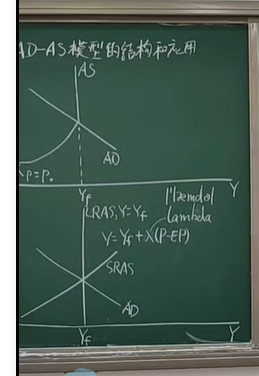 AD-AS模型的结构和应用
AS
AD
P=P₀
Yf
Y
LRAS, Y=Yf
lambda
Y=Yf+λ(P-EP)
SRAS
AD
Yf
Y